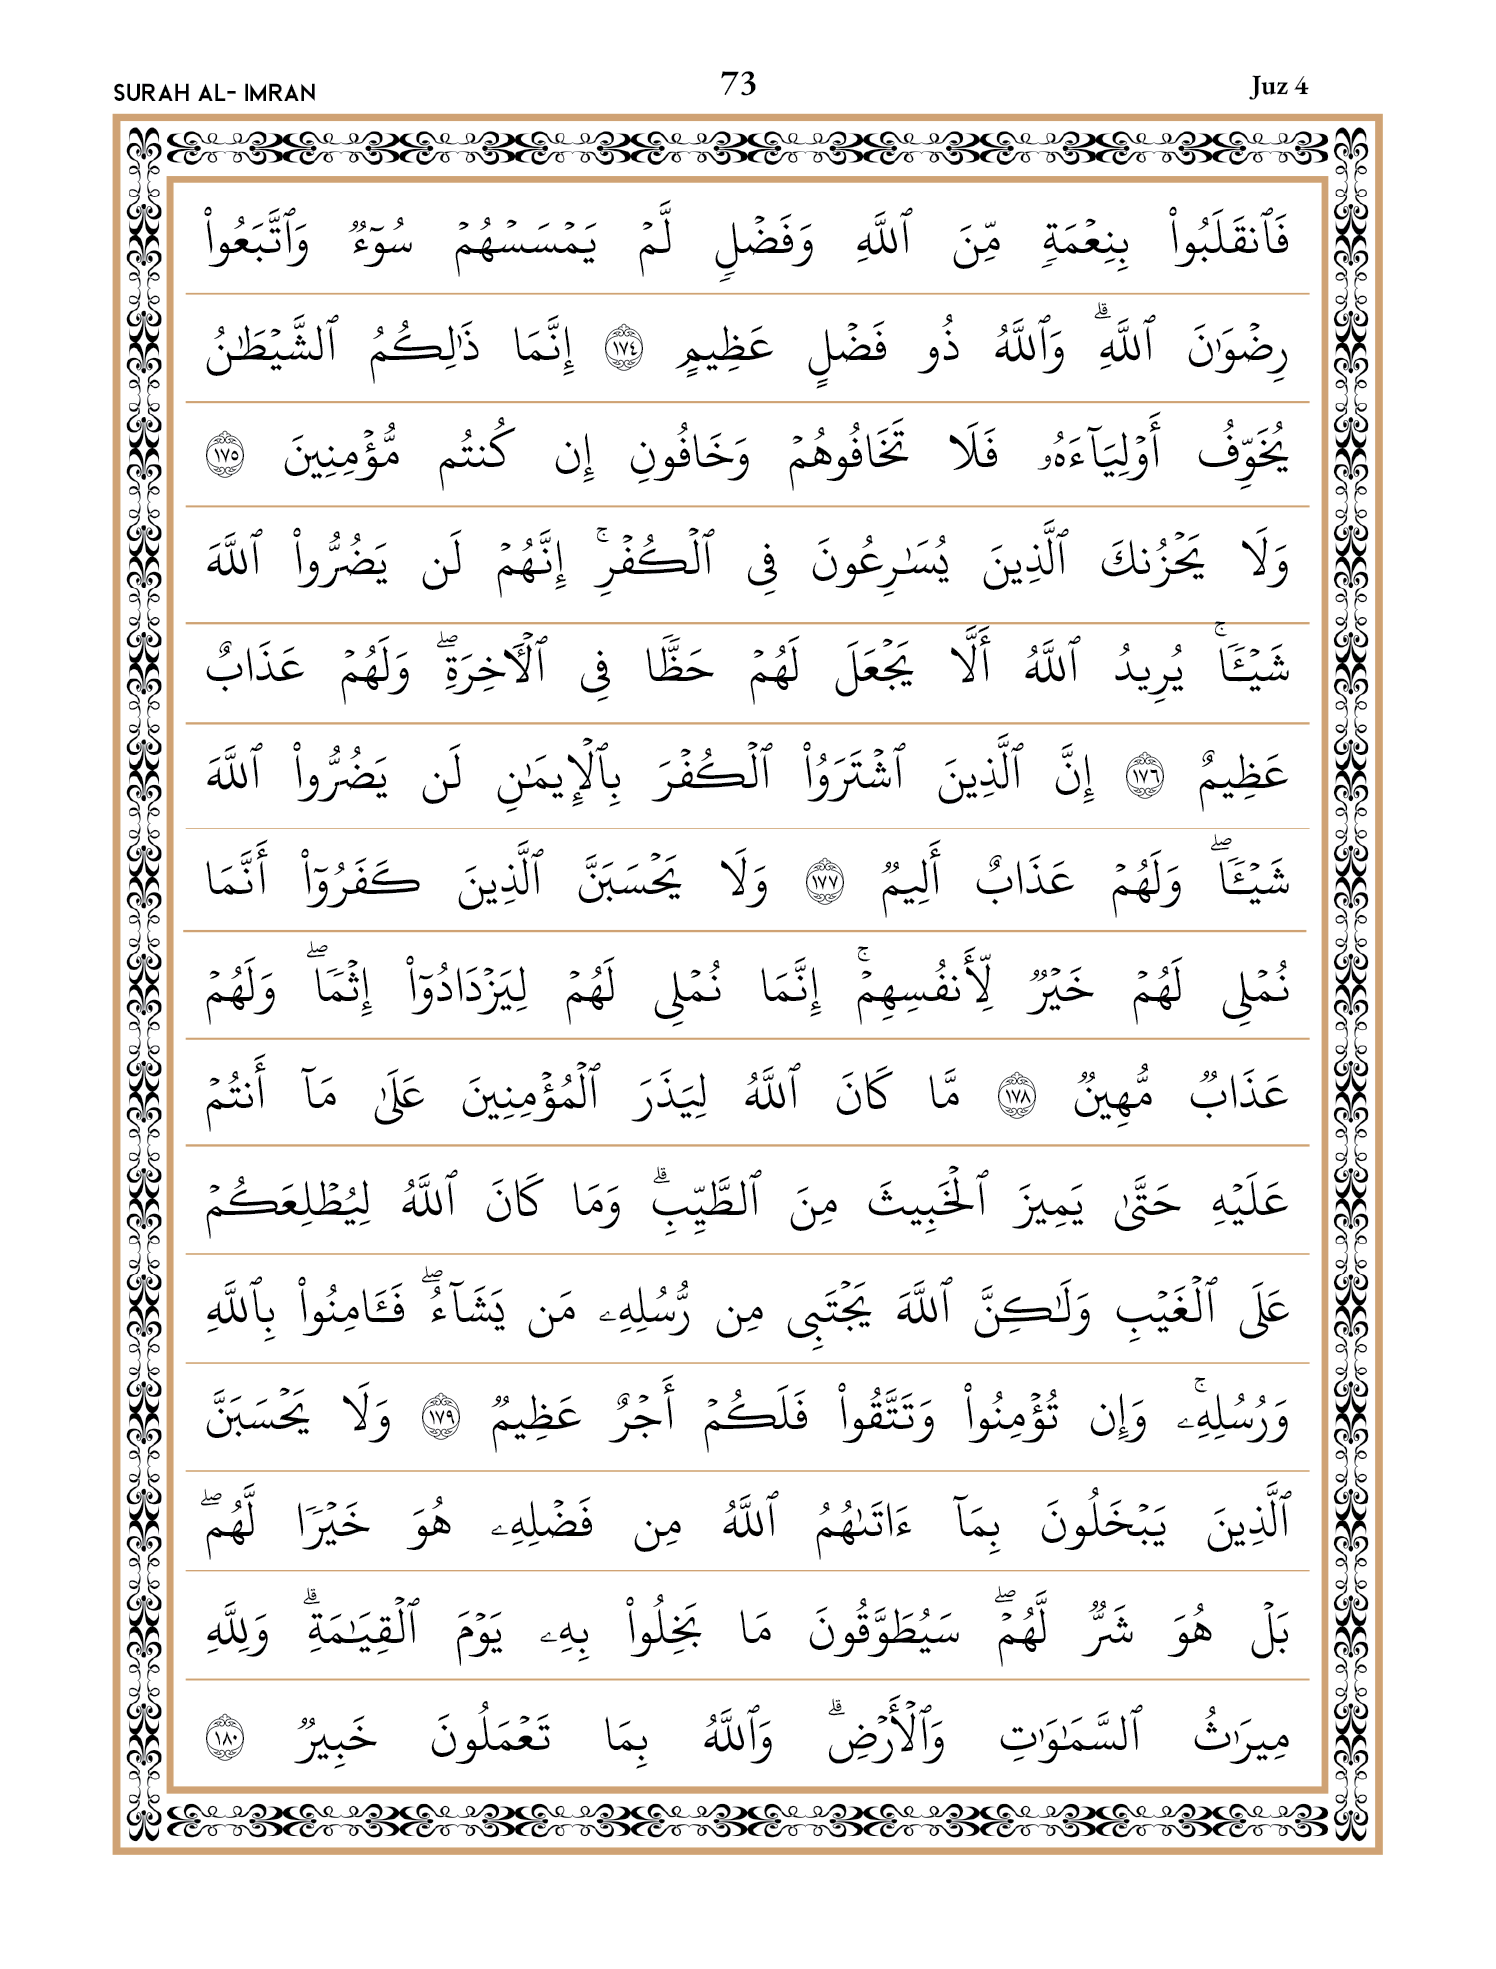 SURAH AL- IMRAN 73 Juz 4
فَٱنقَلَبُوا۟ بِنِعْمَةٍ مِّنَ ٱللَّهِ وَفَضْلٍ لَّمْ يَمْسَسْهُمْ سُوٓءٌ وَٱتَّبَعُوا۟
رِضْوَٰنَ ٱللَّهِ ۗ وَٱللَّهُ ذُو فَضْلٍ عَظِيمٍ ١٧٤ إِنَّمَا ذَٰلِكُمُ ٱلشَّيْطَٰنُ
يُخَوِّفُ أَوْلِيَآءَهُۥ فَلَا تَخَافُوهُمْ وَخَافُونِ إِن كُنتُم مُّؤْمِنِينَ ١٧٥
وَلَا يَحْزُنكَ ٱلَّذِينَ يُسَٰرِعُونَ فِى ٱلْكُفْرِ ۚ إِنَّهُمْ لَن يَضُرُّوا۟ ٱللَّهَ
شَيْـًٔا ۚ يُرِيدُ ٱللَّهُ أَلَّا يَجْعَلَ لَهُمْ حَظًّا فِى ٱلْـَٔاخِرَةِ ۖ وَلَهُمْ عَذَابٌ
عَظِيمٌ ١٧٦ إِنَّ ٱلَّذِينَ ٱشْتَرَوُا۟ ٱلْكُفْرَ بِٱلْإِيمَٰنِ لَن يَضُرُّوا۟ ٱللَّهَ
شَيْـًٔا ۖ وَلَهُمْ عَذَابٌ أَلِيمٌ ١٧٧ وَلَا يَحْسَبَنَّ ٱلَّذِينَ كَفَرُوٓا۟ أَنَّمَا
نُمْلِى لَهُمْ خَيْرٌ لِّأَنفُسِهِمْ ۚ إِنَّمَا نُمْلِى لَهُمْ لِيَزْدَادُوٓا۟ إِثْمًا ۖ وَلَهُمْ
عَذَابٌ مُّهِينٌ ١٧٨ مَّا كَانَ ٱللَّهُ لِيَذَرَ ٱلْمُؤْمِنِينَ عَلَىٰ مَآ أَنتُمْ
عَلَيْهِ حَتَّىٰ يَمِيزَ ٱلْخَبِيثَ مِنَ ٱلطَّيِّبِ ۗ وَمَا كَانَ ٱللَّهُ لِيُطْلِعَكُمْ
عَلَى ٱلْغَيْبِ وَلَٰكِنَّ ٱللَّهَ يَجْتَبِى مِن رُّسُلِهِۦ مَن يَشَآءُ ۖ فَـَٔامِنُوا۟ بِٱللَّهِ
وَرُسُلِهِۦ ۚ وَإِن تُؤْمِنُوا۟ وَتَتَّقُوا۟ فَلَكُمْ أَجْرٌ عَظِيمٌ ١٧٩ وَلَا يَحْسَبَنَّ
ٱلَّذِينَ يَبْخَلُونَ بِمَآ ءَاتَىٰهُمُ ٱللَّهُ مِن فَضْلِهِۦ هُوَ خَيْرًا لَّهُم ۖ
بَلْ هُوَ شَرٌّ لَّهُمْ ۖ سَيُطَوَّقُونَ مَا بَخِلُوا۟ بِهِۦ يَوْمَ ٱلْقِيَٰمَةِ ۗ وَلِلَّهِ
مِيرَٰثُ ٱلسَّمَٰوَٰتِ وَٱلْأَرْضِ ۗ وَٱللَّهُ بِمَا تَعْمَلُونَ خَبِيرٌ ١٨٠